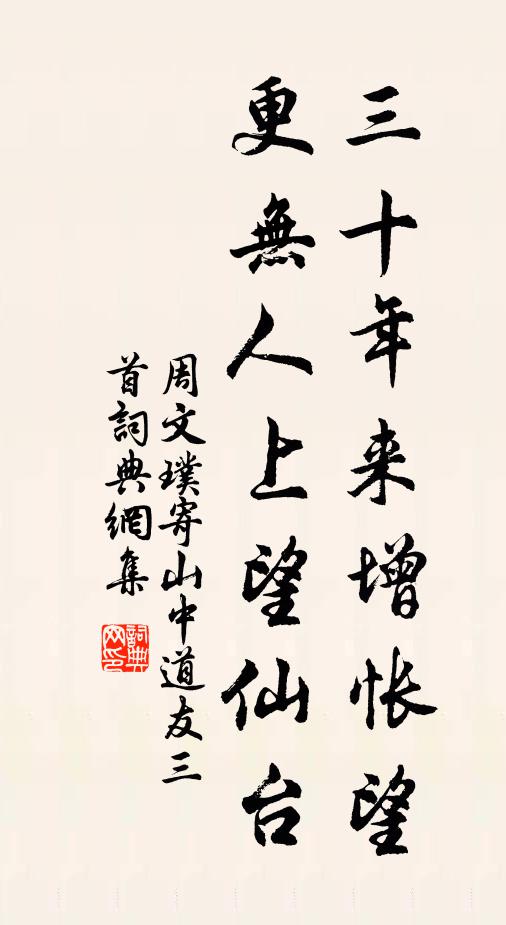 三十年来增怅望
更無人上望仙台
周文璞寄山中道友三
首詞典網集
詞典网印